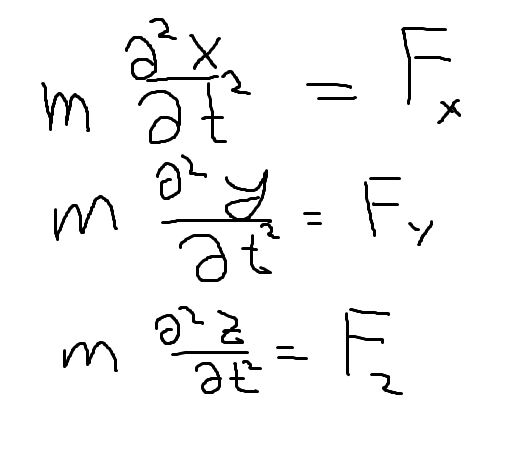 m ∂²x/∂t² = Fₓ
m ∂²y/∂t² = Fᵧ
m ∂²z/∂t² = F_z